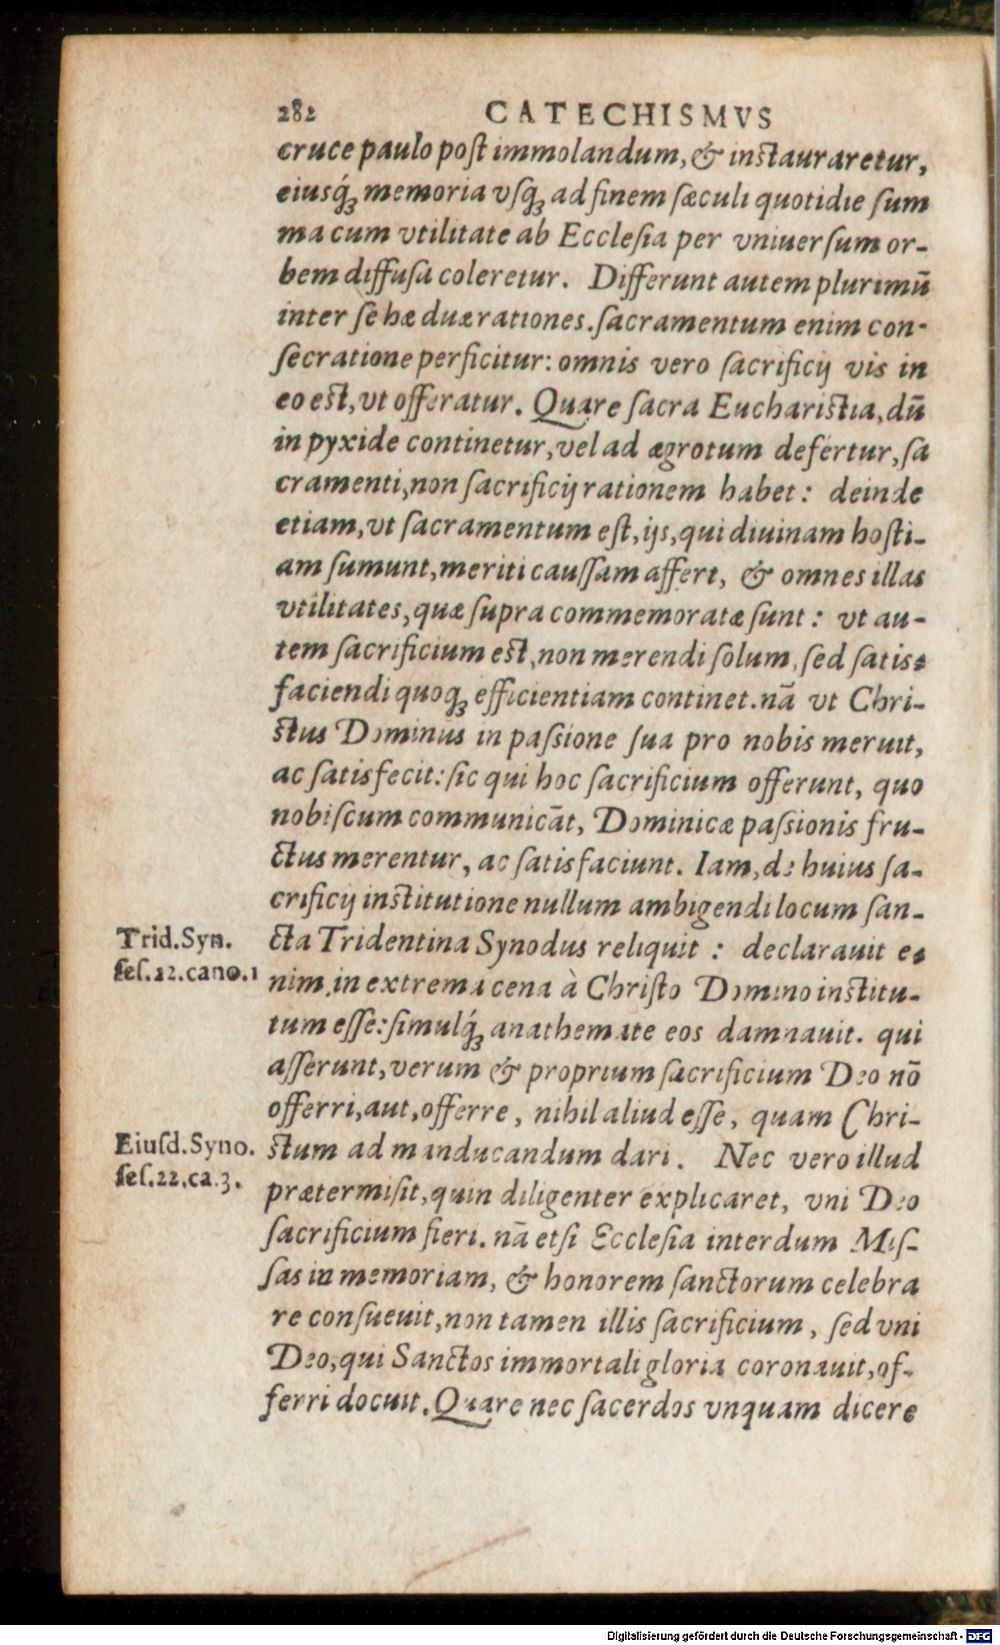 282 CATECHISMVS
cruce paulo poſt immolandum, & inſtauraretur,
eiusq́ꝫ memoria vſqꝫ ad finem ſæculi quotidie ſum
ma cum vtilitate ab Eccleſia per vniuerſum or-
bem diffuſa coleretur. Differunt autem plurimū
inter ſe hæ duæ rationes. ſacramentum enim con-
ſecratione perficitur: omnis vero ſacrificij vis in
eo eſt, vt offeratur. Quare ſacra Euchariſtia, dū
in pyxide continetur, vel ad ægrotum defertur, ſa
cramenti, non ſacrificij rationem habet: deinde
etiam, vt ſacramentum eſt, ijs, qui diuinam hoſti-
am ſumunt, meriti cauſſam affert, & omnes illas
vtilitates, quæ ſupra commemoratæ ſunt: vt au-
tem ſacrificium eſt, non merendi ſolum, ſed ſatis-
faciendi quoqꝫ efficientiam continet. nā vt Chri-
ſtus Dominus in paſsione ſua pro nobis meruit,
ac ſatisfecit: ſic qui hoc ſacrificium offerunt, quo
nobiſcum communicāt, Dominicæ paſsionis fru-
ctus merentur, ac ſatisfaciunt. Iam, de huius ſa-
crificij inſtitutione nullum ambigendi locum ſan-
cta Tridentina Synodus reliquit: declarauit e-
nim, in extrema cena à Chriſto Domino inſtitu-
tum eſſe: ſimulq́ꝫ anathemate eos damnauit. qui
aſſerunt, verum & proprium ſacrificium Deo nō
offerri, aut, offerre, nihil aliud eſſe, quam Chri-
ſtum ad manducandum dari. Nec vero illud
prætermiſit, quin diligenter explicaret, vni Deo
ſacrificium fieri. nā etſi Eccleſia interdum Miſ-
ſas in memoriam, & honorem ſanctorum celebra
re conſueuit, non tamen illis ſacrificium, ſed vni
Deo, qui Sanctos immortali gloria coronauit, of-
ferri docuit. Quare nec ſacerdos vnquam dicere
Trid. Syn.
ſeſ. 22. cano. 1
Eiuſd. Syno.
ſeſ. 22. ca. 3.
Digitalisierung gefördert durch die Deutsche Forschungsgemeinschaft - DFG